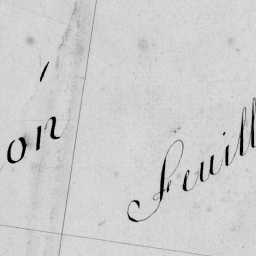 ón
Feuill